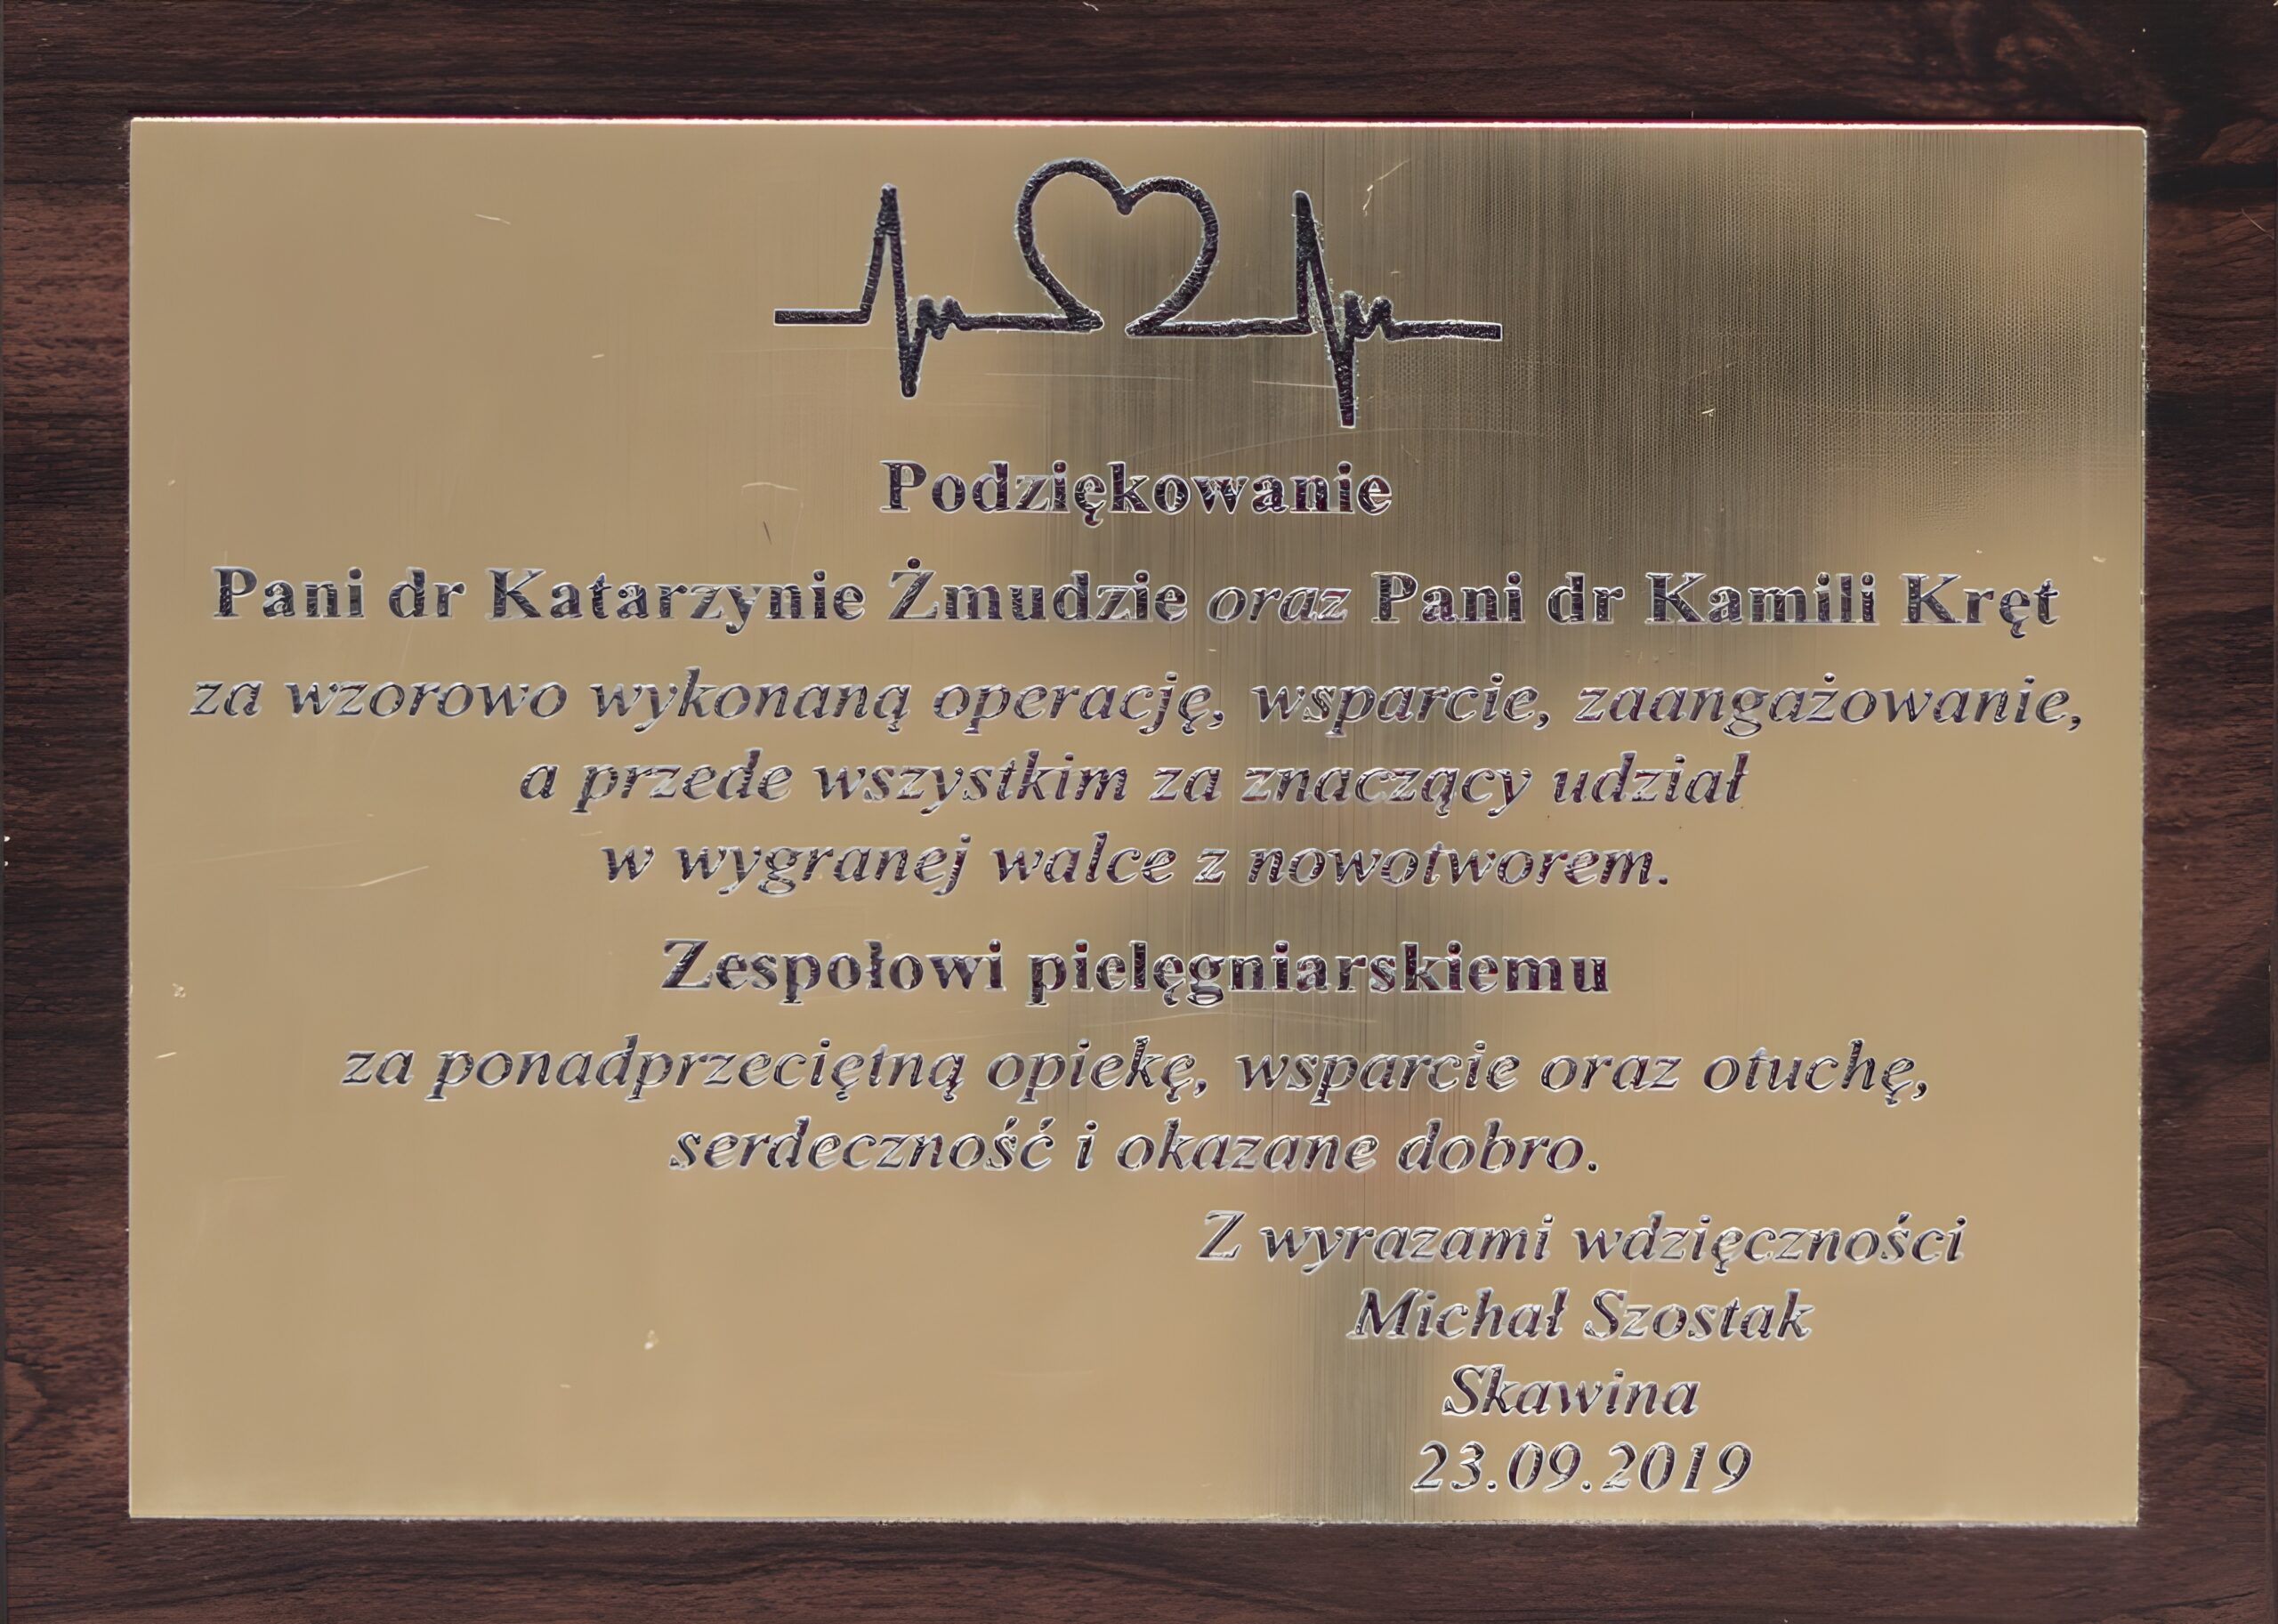 Podziękowanie
Pani dr Katarzynie Żmudzie oraz Pani dr Kamili Kręt
za wzorowo wykonaną operację, wsparcie, zaangażowanie,
a przede wszystkim za znaczący udział
w wygranej walce z nowotworem.
Zespołowi pielęgniarskiemu
za ponadprzeciętną opiekę, wsparcie oraz otuchę,
serdeczność i okazane dobro.
Z wyrazami wdzięczności
Michał Szostak
Skawina
23.09.2019